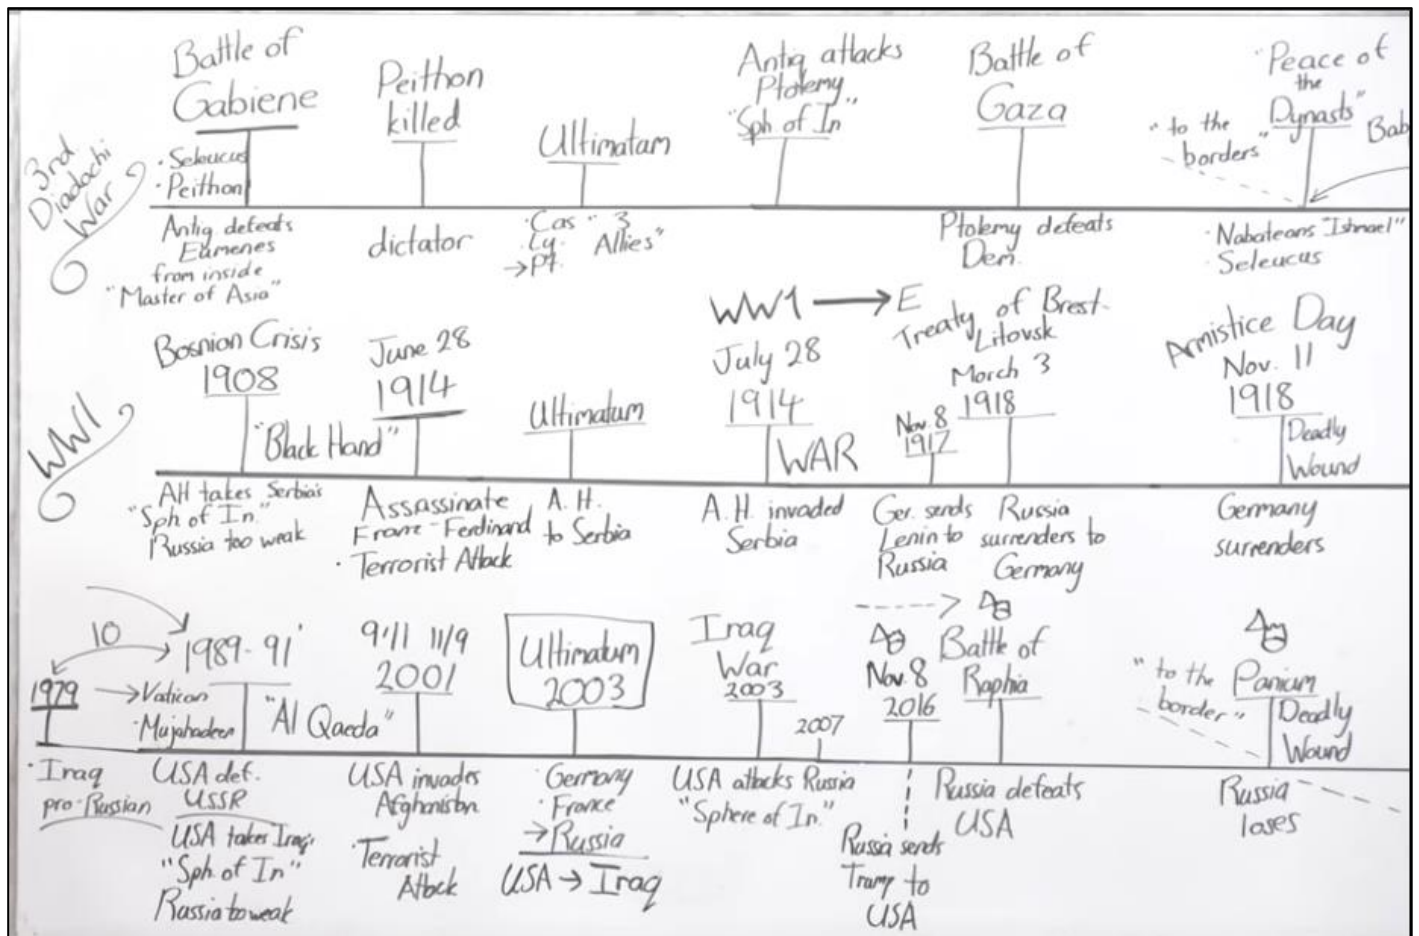 3rd
Diadachi
War
Battle of
Gabiene
• Seleucus
• Peithon
Antiq defeats
Eumenes
from inside
"Master of Asia"
Peithon
killed
dictator
Ultimatam
• Cas " 3
Ly. Allies"
→ Pt.
Antiq attacks
Ptolemy
"Sph of In"
Battle of
Gaza
Ptolemy defeats
Dem.
"Peace of
the
Dynasts"
"to the
borders"
Bab
• Nabateans "Ishmael"
• Seleucus
WW1
Bosnion Crisis
1908
"Black Hand"
AH takes Serbia's
"Sph of In."
Russia too weak
June 28
1914
Assassinate
Franz-Ferdinand
• Terrorist Attack
Ultimatum
A. H.
to Serbia
WW1 → E
July 28
1914
WAR
A. H. invaded
Serbia
Nov. 8
1917
Ger. sends
Lenin to
Russia
Treaty of Brest-
Litovsk
March 3
1918
Russia
surrenders to
Germany
Armistice Day
Nov. 11
1918
Deadly
Wound
Germany
surrenders
10
1979
• Iraq
pro-Russian
1989-91'
→ Vatican
• Mujahadeen
"Al Qaeda"
USA def.
USSR
USA takes Iraq
"Sph. of In"
Russia too weak
9/11 11/9
2001
USA invades
Afghanistan
• Terrorist
Attack
Ultimatum
2003
• Germany
• France
→ Russia
USA → Iraq
Iraq
War
2003
2007
USA attacks Russia
"Sphere of In."
Nov. 8
2016
Russia sends
Trump to
USA
Battle of
Raphia
Russia defeats
USA
"to the
border"
Panium
Deadly
Wound
Russia
loses